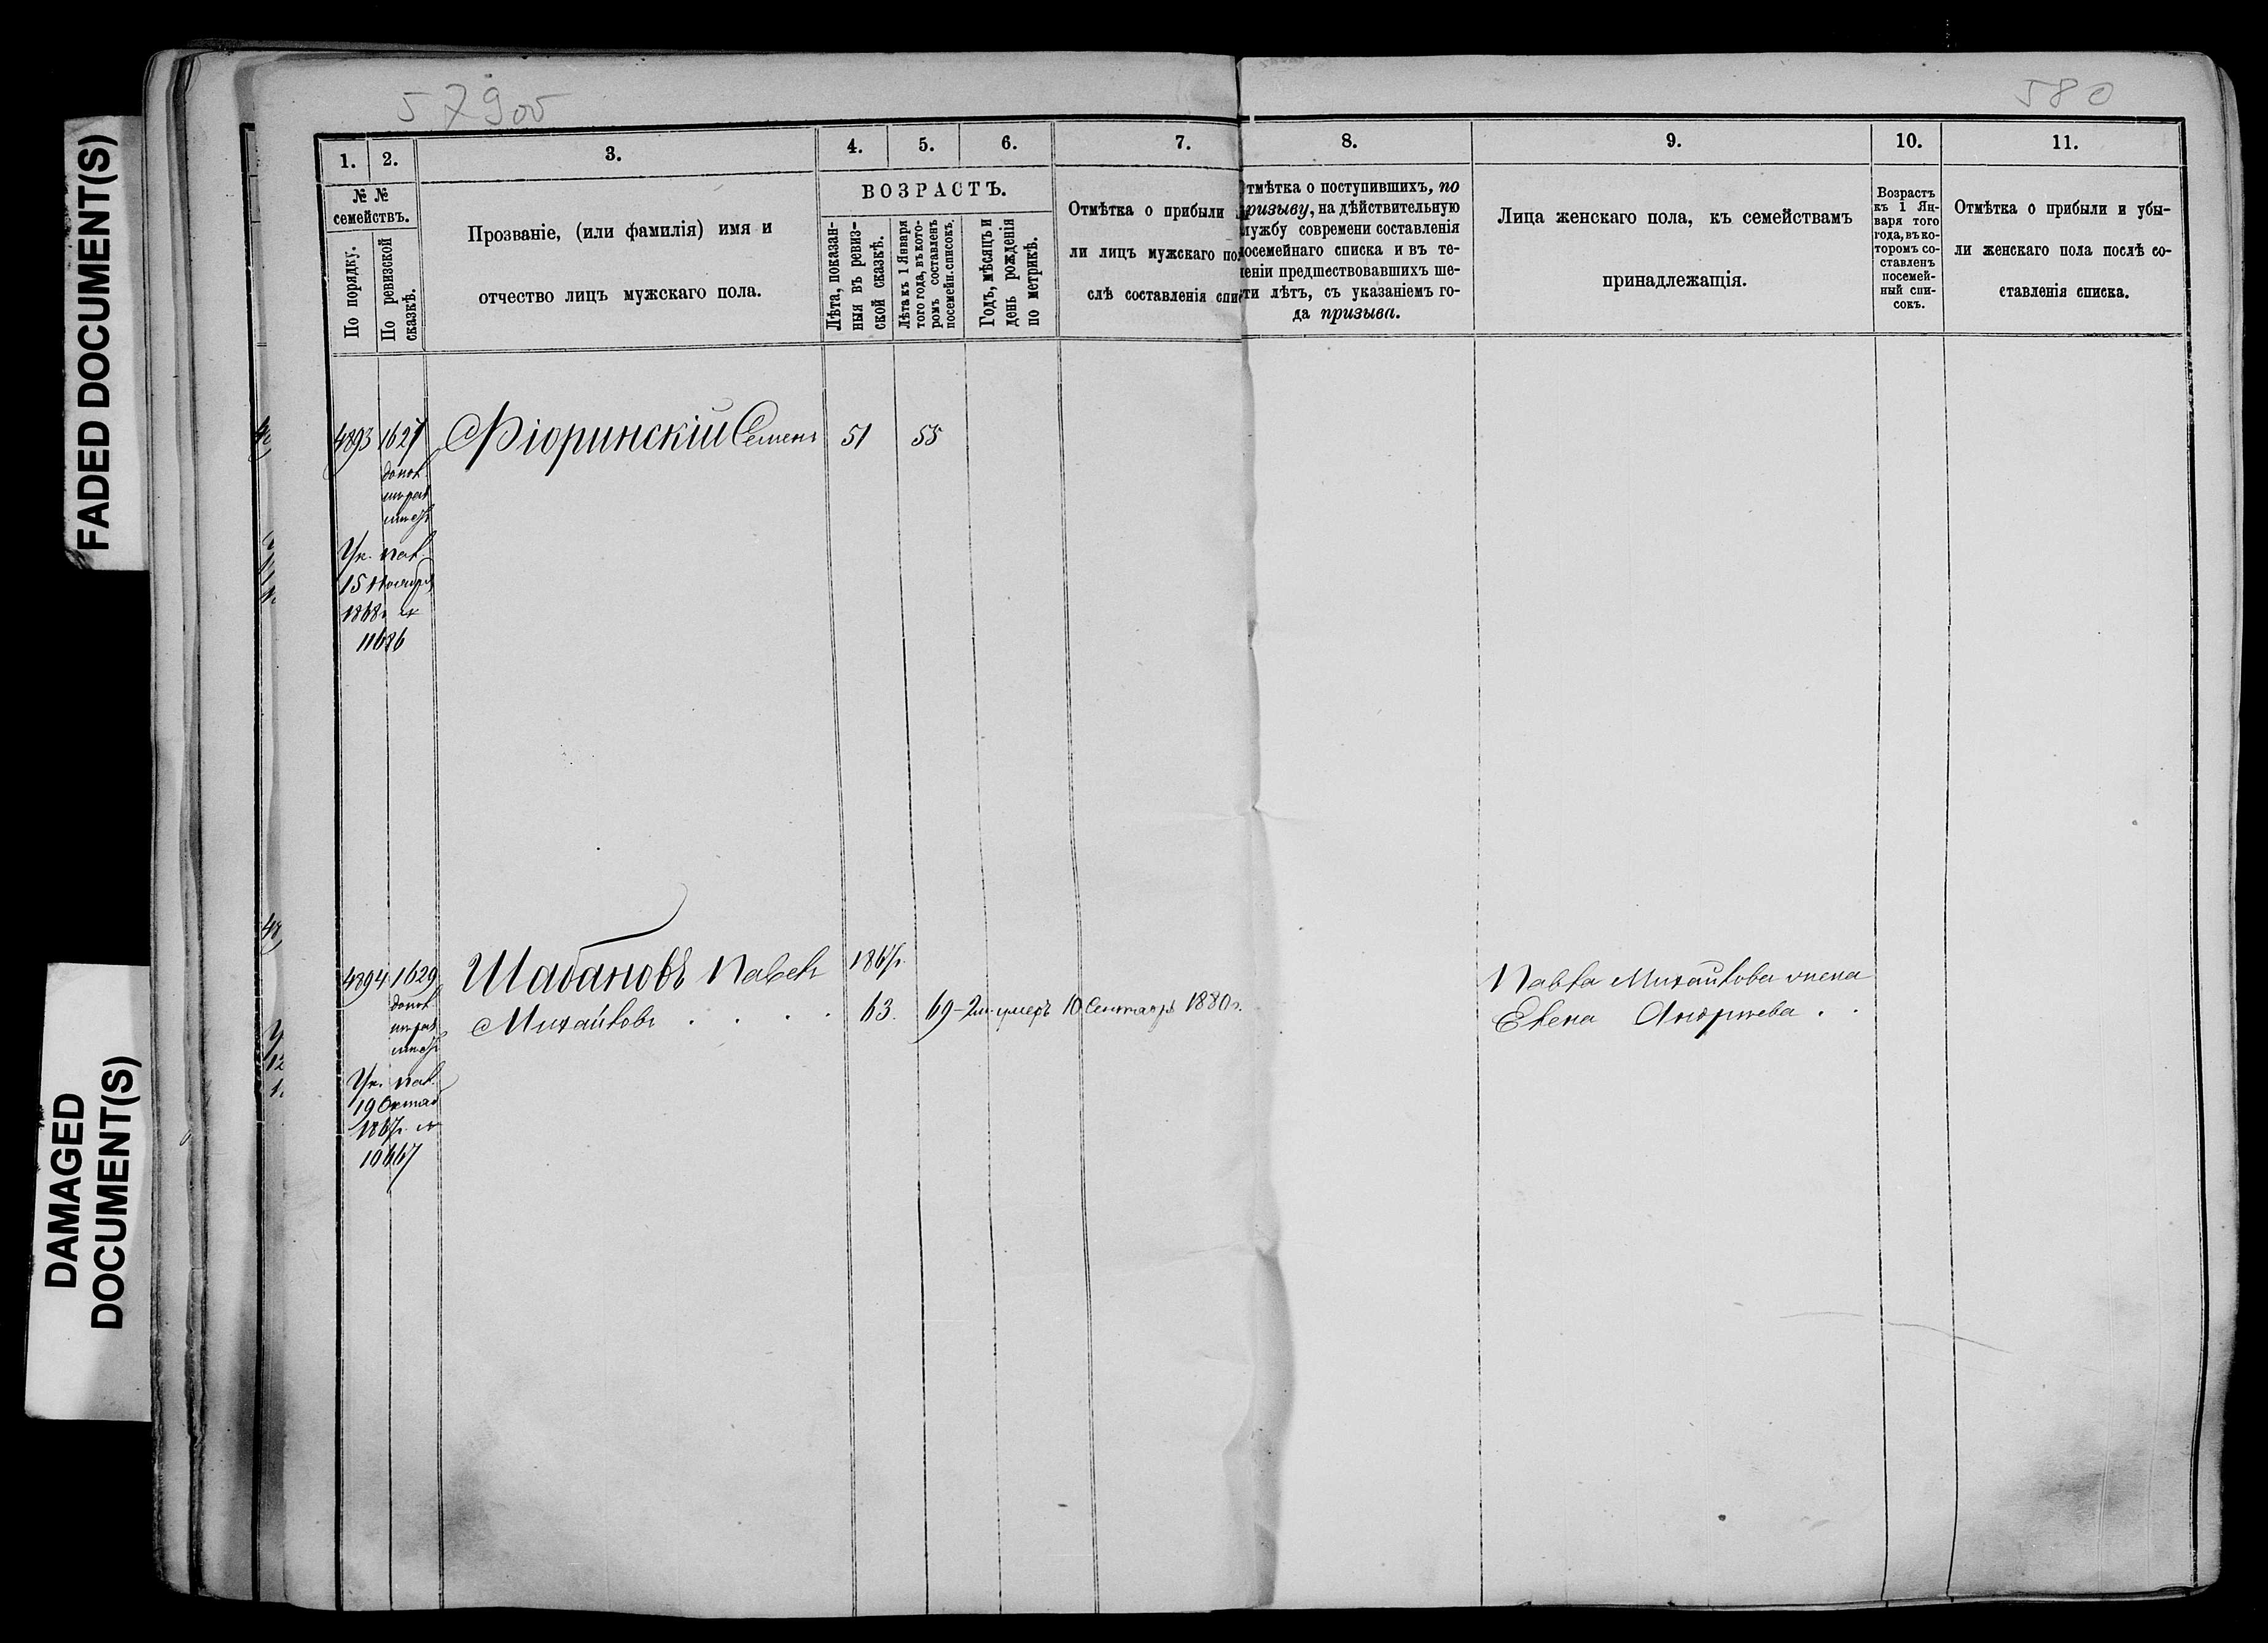 FADED DOCUMENT(S)
DAMAGED
DOCUMENT(S)
579об
580
1.
2.
3.
4.
5.
6.
7.
8.
9.
10.
11.
№ №
семействъ.
По порядку.
По ревизской
сказкѣ.
Прозваніе, (или фамилія) имя и
отчество лицъ мужскаго пола.
ВОЗРАСТЪ.
Лѣта, показан-
ныя въ ревиз-
ской сказкѣ.
Лѣта къ 1 Января
того года, въ кото-
ромъ составленъ
посемейн. списокъ.
Годъ, мѣсяцъ и
день рожденія
по метрикѣ.
Отмѣтка о прибыли
ли лицъ мужскаго по
слѣ составленія спи
тмѣтка о поступившихъ, по
ризыву, на дѣйствительную
лужбу современи составленія
посемейнаго списка и въ те-
еніи предшествовавшихъ ше-
ти лѣтъ, съ указаніемъ го-
да призыва.
Лица женскаго пола, къ семействамъ
принадлежащія.
Возрастъ
къ 1 Ян-
варя того
года, въ ко-
торомъ со-
ставленъ
посемей-
ный спи-
сокъ.
Отмѣтка о прибыли и убы-
ли женскаго пола послѣ со-
ставленія списка.
4893 1627 Фіоринскій Семенъ 51 55
допол.
Ук. пал.
15 Ноября
1868г. №
11686
4894 1629 Шабановъ Павелъ 1867г.
допол.
Михайловъ . . . . 63. 69 - 2м. умеръ 10 Сентяр 1880г.
Ук. пал.
19 Октяб
1867г. №
10667
Павла Михайлова жена
Елена Андреева . .